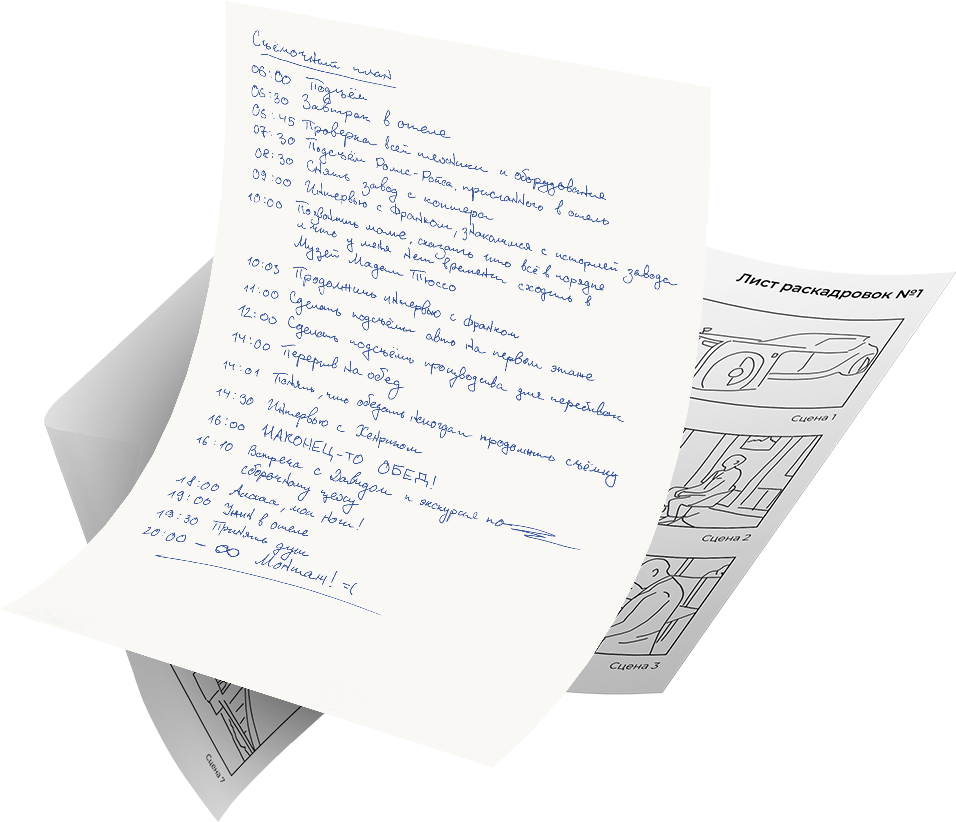 Съёмочный план
06:00 Подъём
06:30 Завтрак в отеле
06:45 Проверка всей техники и оборудования
07:30 Подсъём Ролс-Ройса, присланного в отель
08:30 Снять завод с коптера
09:00 Интервью с Франком, знакомимся с историей завода
10:00 Позвонить маме, сказать что всё в порядке
и что у меня нет времени сходить в
Музей Мадам Тюссо
10:03 Продолжить интервью с Франком
11:00 Сделать подсъёмы авто на первом этаже
12:00 Сделать подсъёмы производства для перебивок
14:00 Перерыв на обед
14:01 Понять, что обедать некогда и продолжить съёмку
14:30 Интервью с Хенриком
16:00 НАКОНЕЦ-ТО ОБЕД!
16:10 Встреча с Давидом и экскурсия по
сборочному цеху
18:00 Аааааа, мои ноги!
19:00 Ужин в отеле
19:30 Принять душ
20:00 – ∞ Монтаж! =(
Лист раскадровок №1
Сцена 1
Сцена 2
Сцена 3
Сцена 7